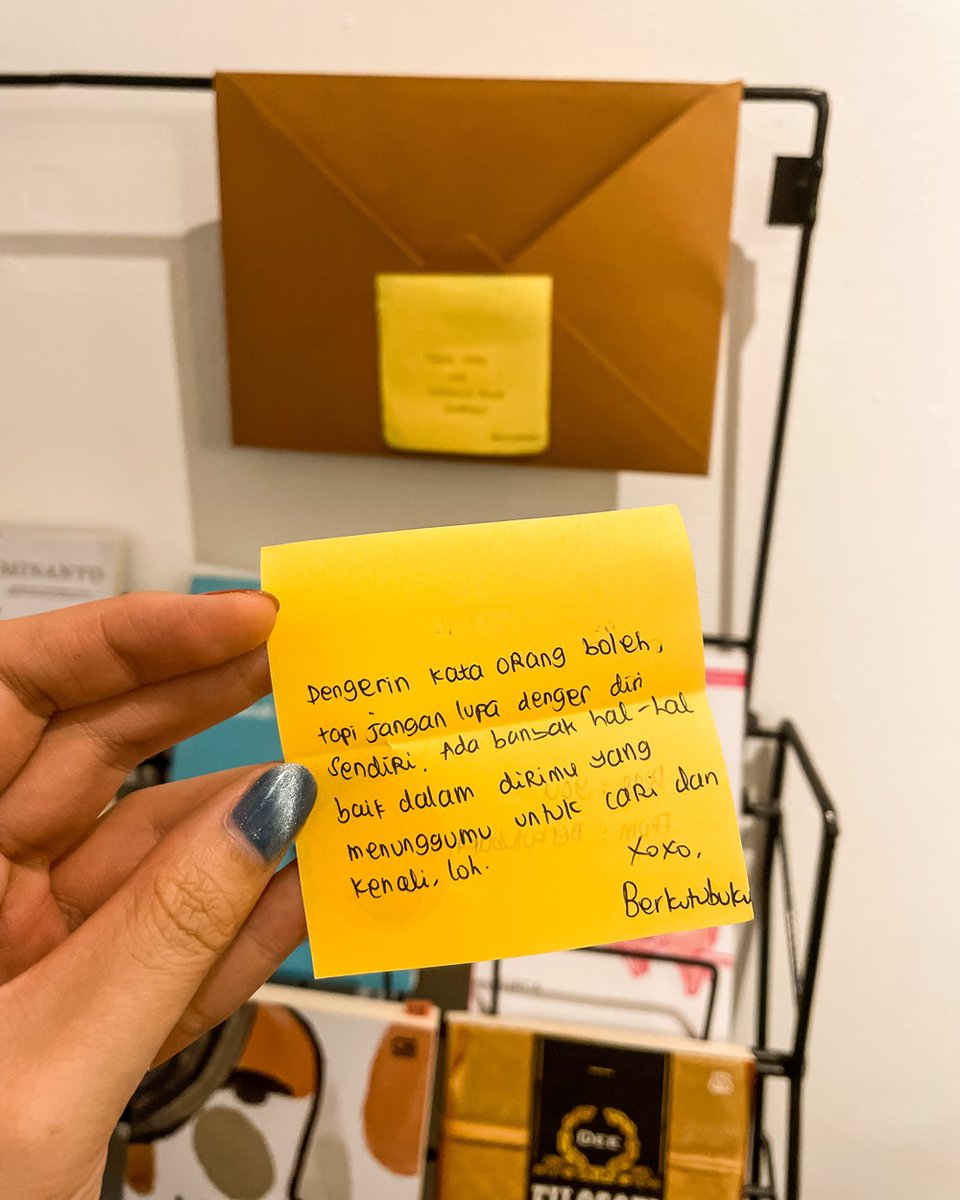 MINANTO
Dengerin kata orang boleh,
tapi jangan lupa denger diri
sendiri. Ada banyak hal-hal
baik dalam dirimu yang
menunggumu untuk cari dan
kenali, loh.
xoxo,
Berkutubuku
DEE
FILOSOFI